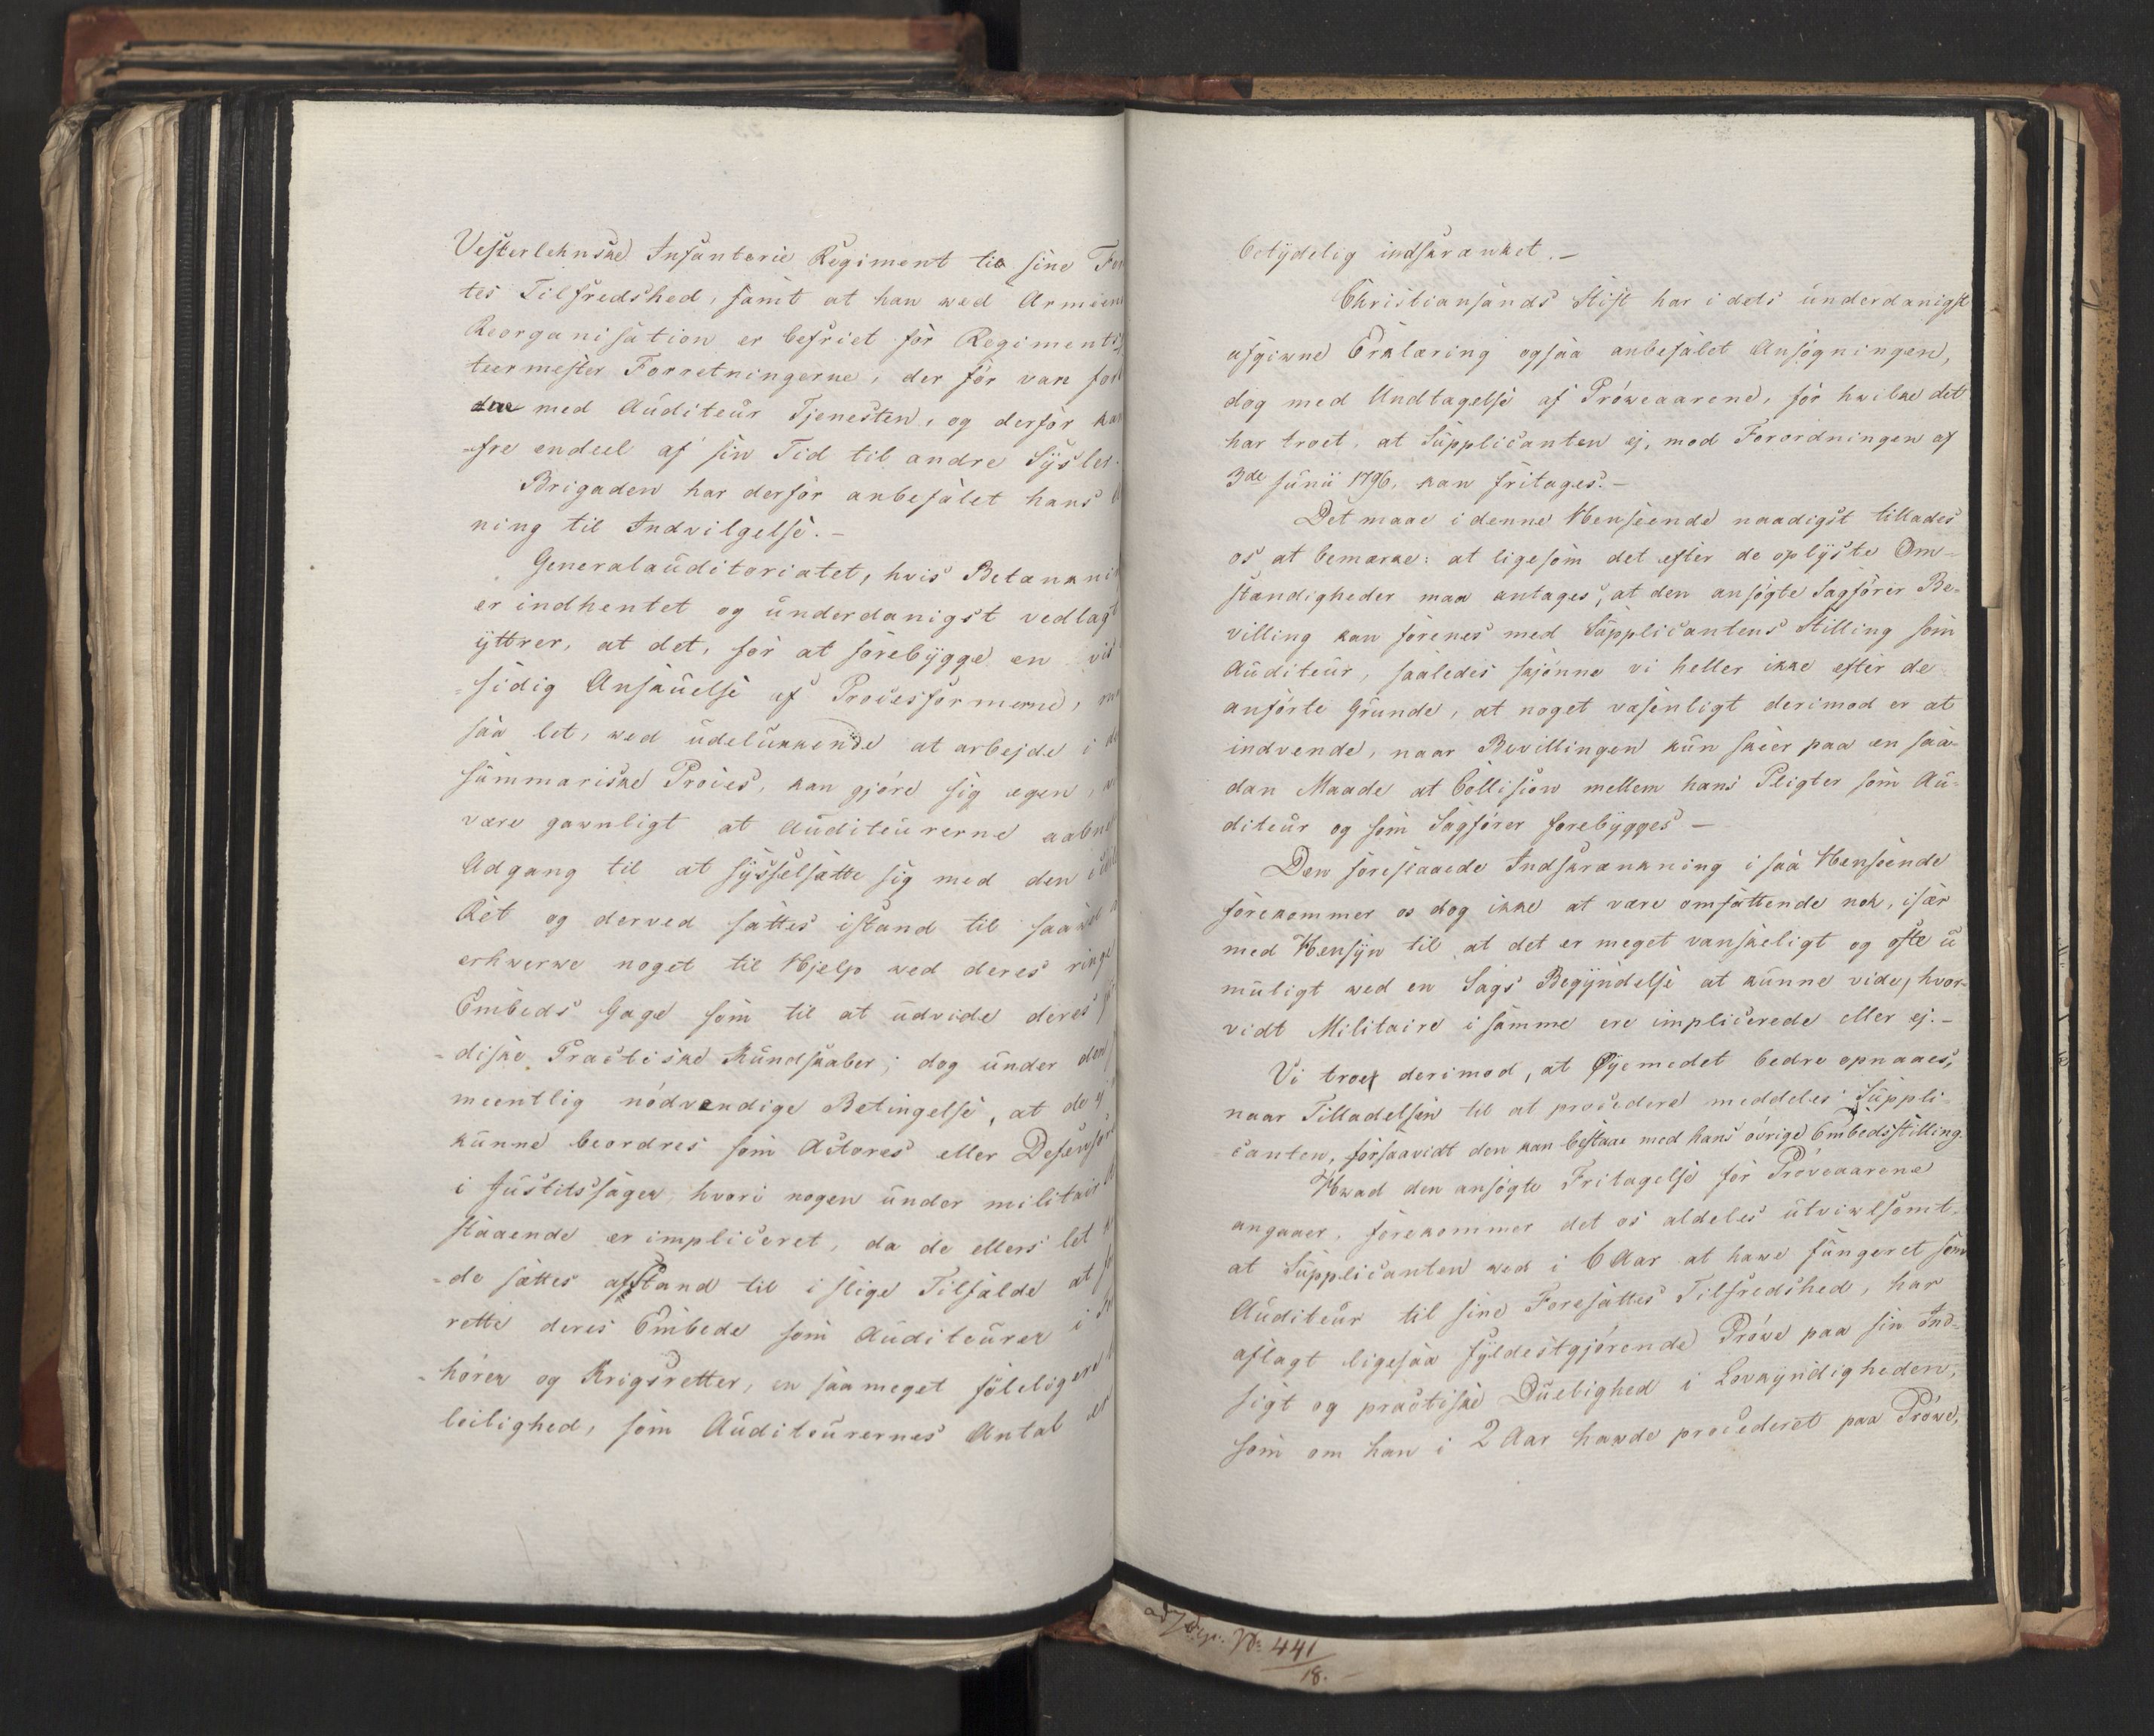 Vesterlehnske Infanterie Regiment til sine For
tes Tilfredshed, samt at han ved Armeen
Reorganisation er befriet for Regiments
teermester Forretningerne, der før var for
den med Auditeur Tjenesten, og derfor kan
-fre endeel af sin Tid til andre Sysler.
Brigaden har derfor anbefalet hans
ning til Indvilgelse.-
Generalauditoriatet, hvis Betænkni
er indhentet og underdanigst vedlagt
yttrer, at det, for at forebygge en vis
-sidig Anskuelse af Procesformerne,
saa let, ved udelukkende at arbejde i
summariske Proces, kan gjøre sig egen,
være gavnligt at Auditeurerne aabnes
Adgang til at sysselsætte sig med den
Ret og derved sættes istand til saavel
erhverve noget til Hjelp ved deres ringe
Embeds Gage som til at udvide deres
-diske Practiske Kundskaber; dog under den
meentlig nødvendige Betingelse, at de ej
kunne beordres som Actores eller Defensor
i Justitssager, hvori nogen under militair
staaende er impliceret, da de ellers let
-de sættes afstand til i slige Tilfælde at
rette deres Embede som Auditeurer i
-hører og Krigsretter, en saameget føleligere
leilighed, som Auditeurernes Antal er
betydelig indskrænket.-
Christiansands Stift har i dets underdanigst
afgivne Erklæring ogsaa anbefalet Ansøgningen,
dog med Undtagelse af Prøveaarene, for hvilke det
har troet, at Supplicanten ej, mod Forordningen af
3de Junii 1796, kan fritages.-
Det maae i denne Henseende naadigst tillades
os at bemærke: at ligesom det efter de oplyste Om-
stændigheder maa antages, at den ansøgte Sagfører Be-
villing kan forenes med Supplicantens Stilling som
Auditeur, saaledes skjønne vi heller ikke efter de
anførte Grunde, at noget væsenligt derimod er at
indvende, naar Bevillingen kun skeer paa en saa-
dan Maade at Collision mellem hans Pligter som Au-
diteur og som Sagfører forebygges -
Den foreslaaede Indskrænkning i saa Henseende
forekommer os dog ikke at være omfattende nok, især
med Hensyn til at det er meget vanskeligt og ofte u
muligt ved en Sags Begyndelse at kunne vide, hvor-
vidt Militaire i samme ere implicerede eller ej.-
Vi troer derimod, at Øjemedet bedre opnaaes,
naar Tilladelsen til at procedere meddeles Suppli-
canten, forsaavidt den kan bestaae med hans øvrige Embedsstilling.
Hvad den ansøgte Fritagelse for Prøveaarene
angaaer, forekommer det os aldeles utvivlsomt,
at Supplicanten ved i 6 Aar at have fungeret som
Auditeur til sine Foresattes Tilfredshed, har
aflagt ligesaa fyldestgjørende Prøve paa sin Ind-
sigt og practiske Duelighed i Lovkyndigheden,
som om han i 2 Aar havde procederet paa Prøve,
No 441
18.-